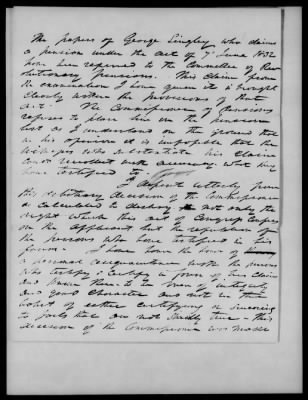 The papers of George Singley who claims
a pension under the act of 7 June 1832
have been referred to the Committee of Rev
olutionary pensions. This claim from
the examination I have given it is brought
clearly within the provisions of that
act. The Commissioner of pensions
refuses to place him on the pension
list as I understand on the ground that
in his opinion it is improbable that the
witnesses who substantiate his claim
could recollect with accuracy what they
have certified to.
I dissent utterly from
this arbitrary decision of the Commissioner
as calculated to destroy not only the
right which this act of Congress confers
on the applicant but the reputation of
the persons who have certified in his
favor. I have the honor of
a personal acquaintance with the persons
who testify & certify in favor of this claim
and know them to be men of integrity
and good character and not in the
habit of either certifying or swearing
to facts that are not strictly true - this
decision of the Commissioner was made